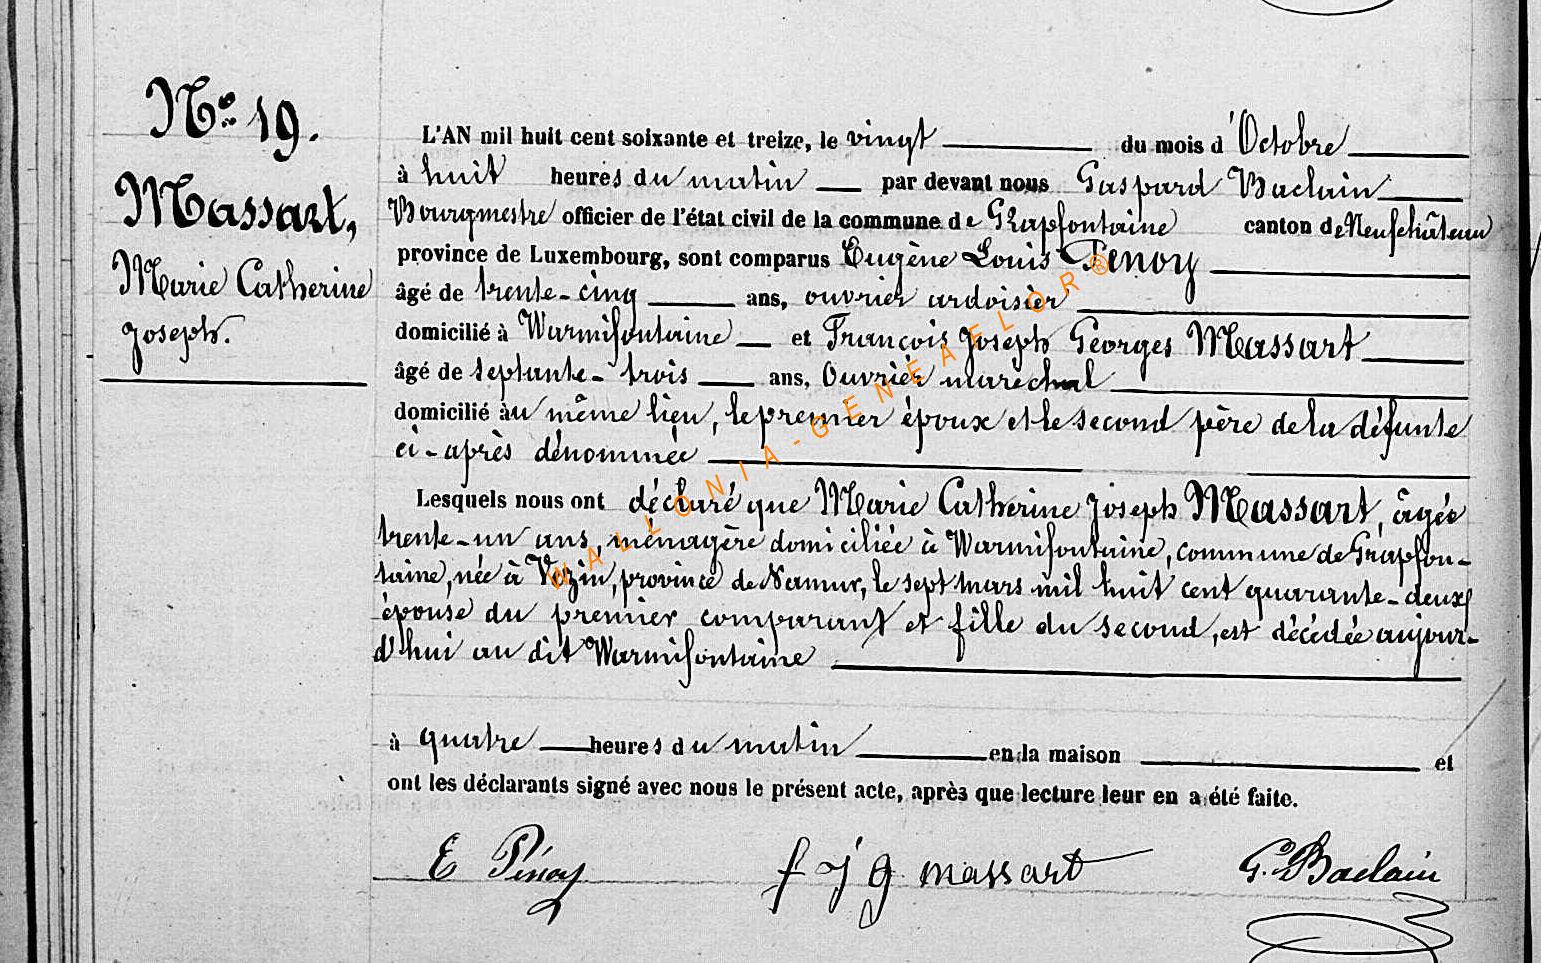 N° 19.
Massart,
Marie Catherine
Joseph.
L'AN mil huit cent soixante et treize, le vingt du mois d'Octobre
à huit heures du matin par devant nous Gaspard Baclain
Bourgmestre officier de l'état civil de la commune de Grapfontaine canton de Neufchâteau
province de Luxembourg, sont comparus Eugène Louis Penoy
âgé de trente-cinq ans, ouvrier ardoisier
domicilié à Warmifontaine et François Joseph Georges Massart
âgé de septante-trois ans, Ouvrier maréchal
domicilié au même lieu, le premier époux et le second père de la défunte
ci-après dénommée
Lesquels nous ont déclaré que Marie Catherine Joseph Massart, âgée
trente-un ans, ménagère domiciliée à Warmifontaine, commune de Grapfon-
taine, née à Vezin, province de Namur, le sept mars mil huit cent quarante-deux
épouse du premier comparant et fille du second, est décédée aujour-
d'hui au dit Warmifontaine
à quatre heures du matin en la maison et
ont les déclarants signé avec nous le présent acte, après que lecture leur en a été faite.
E Pénoy f j g massart G. Baclain
WALLONIA-GENEAFLOR®